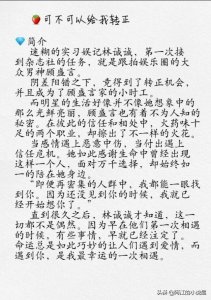 可不可以给我转正
简介
迷糊的实习娱记林诚诚,第一次接
到杂志社的任务,就是跟拍娱乐圈的大
众男神顾盛言。
阴差阳错之下,竟得到了转正机会,
并且成为了顾盛言家的小时工。
而明星的生活好像并不像她想象中的
那么光鲜亮丽,顾盛言也有着不为人知的
秘密。在彼此的信任和相处中,火药味十
足的两个职业,却擦出了不一样的火花。
当感情遇上恶意中伤,当付出遇上
信任危机。她如此感谢生命中曾经出现
这样一个人,面对万千选择,却始终如
一的陪在她身边。
“即便再密集的人群中,我都能一眼找
到你。因为还没见到你的时候,我就已
经开始想你了。”
直到很久之后,林诚诚才知道,这一
切都不是偶然。因为早在他们第一次相遇
的时候,有些事情,早就已经注定了。
命运总是如此巧妙的让人们遇到爱情。而
遇到你,是我最幸运的一次相遇。
头条 @阿江的小说屋